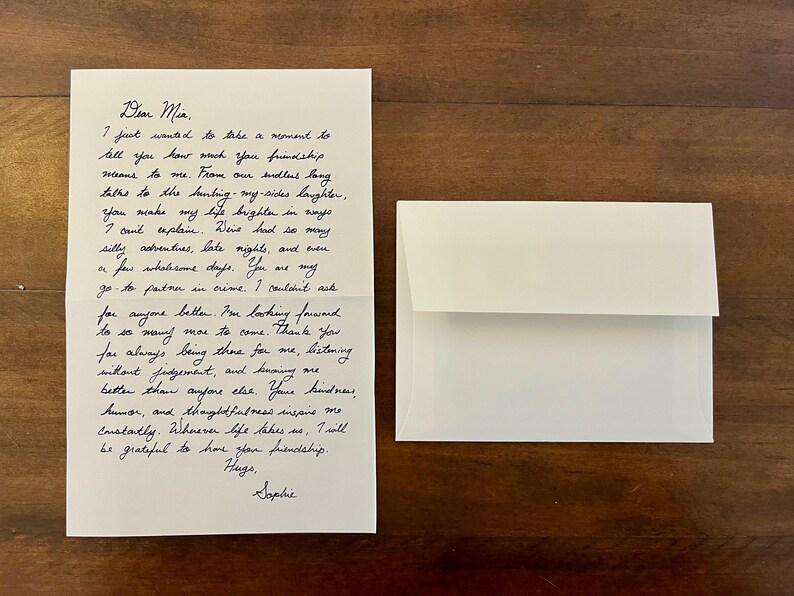 Dear Mia,
I just wanted to take a moment to
tell you how much you friendship
means to me. From our endless long
talks to the hurting-my-sides laughter,
you make my life brighter in ways
I can't explain. We've had so many
silly adventures, late nights, and even
a few wholesome days. You are my
go-to partner in crime. I couldn't ask
for anyone better. I'm looking forward
to so many more to come. Thank you
for always being there for me, listening
without judgement, and knowing me
better than anyone else. Your kindness,
humor, and thoughtfulness inspire me
constantly. Wherever life takes us, I will
be grateful to have your friendship.
Hugs,
Sophie